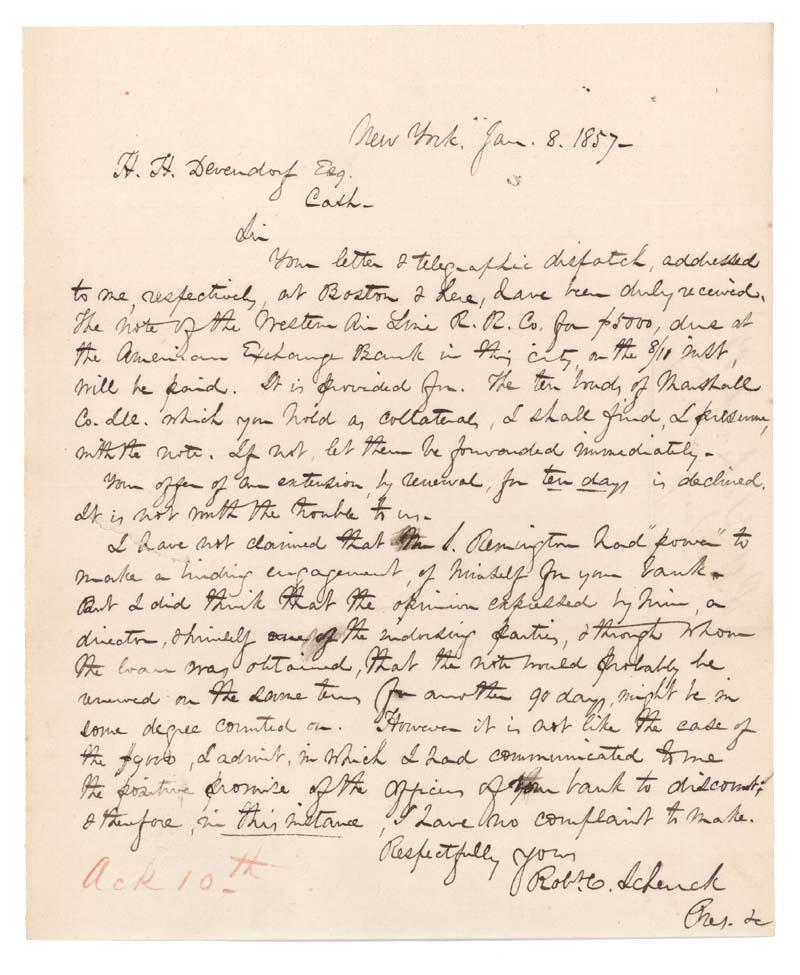 New York. Jan. 8. 1857-
H. H. Devendorf Esq.
Cash-
Sir
Your letter & telegraphic dispatch, addressed
to me, respectively, at Boston & here, have been duly received.
The note of the Western Air Line R. R. Co. for $5000, due at
the American Exchange Bank in this city, on the 8/11 inst,
will be paid. It is provided for. The ten bonds of Marshall
Co. Ill. which you hold as collateral, I shall find, I presume,
with the note. If not, let them be forwarded immediately-
Your offer of an extension, by renewal, for ten days is declined.
It is not worth the trouble to us-
I have not claimed that Mr S. Remington had "power" to
make a binding engagement, of himself for your bank-
But I did think that the opinion expressed by him, a
director, & himself one of the indorsing parties, & through whom
the loan was obtained, that the note would probably be
renewed on the same terms for another 90 days, might be in
some degree counted on. However it is not like the case of
the , I admit, in which I had communicated to me
the positive promise of the officers of your bank to discount;
& therefore, in this instance, I have no complaint to make.
Respectfully yours
Robt. C. Schenck
Pres. &c
Ack 10th